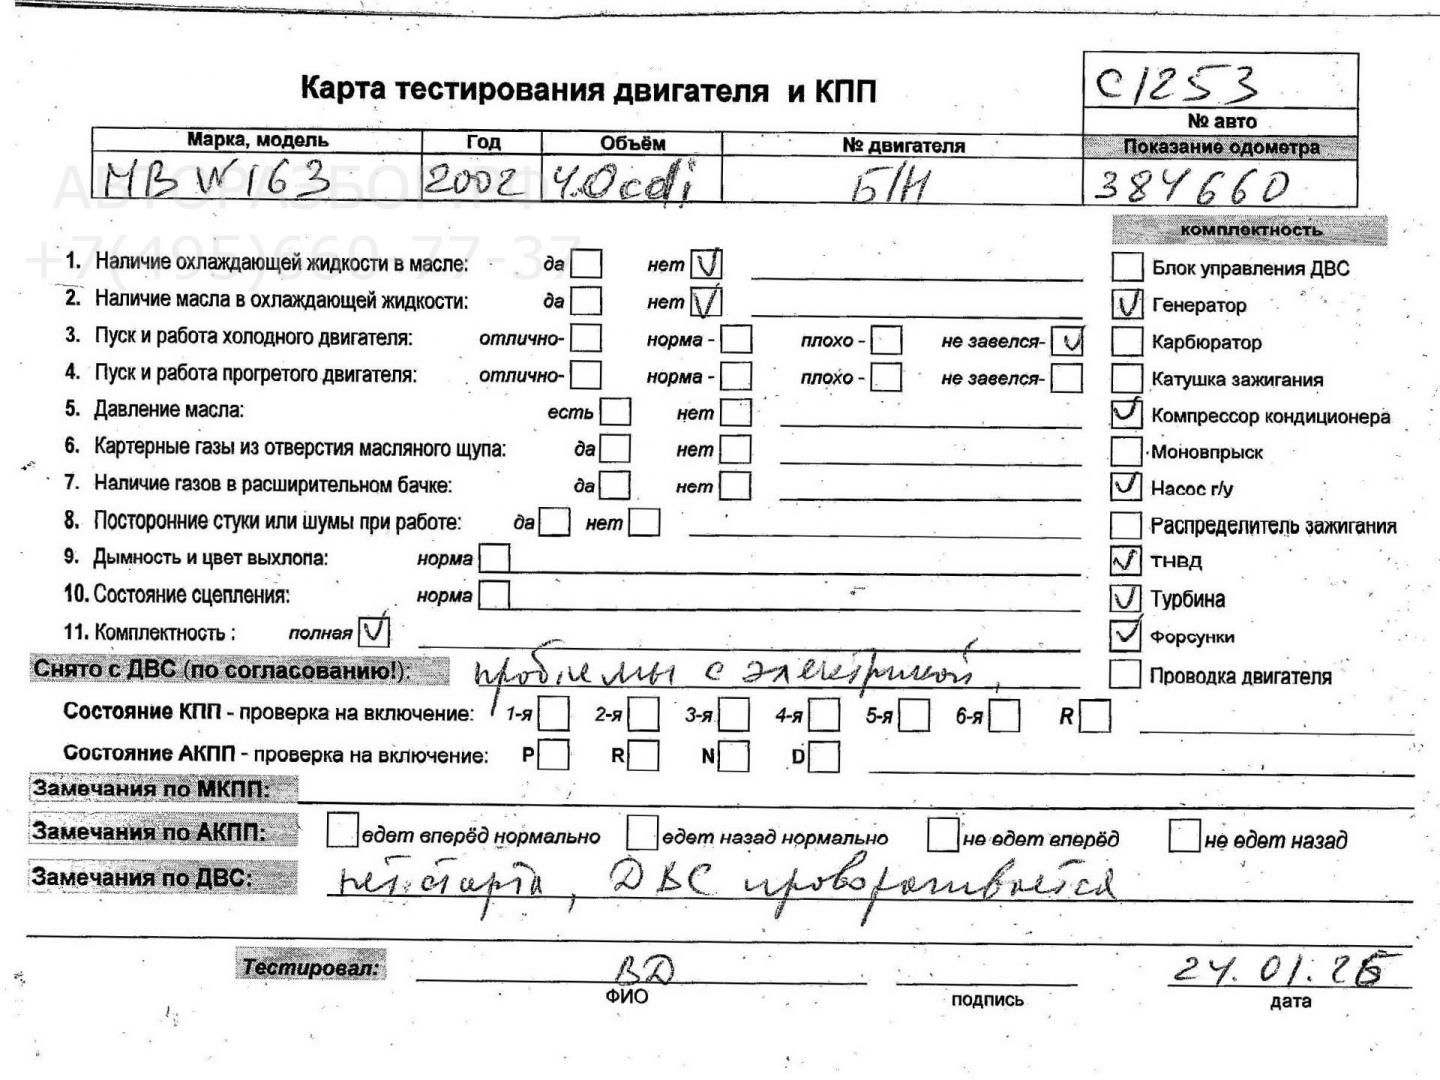 Карта тестирования двигателя и КПП
С1253
№ авто
Марка, модель Год Объём № двигателя Показание одометра
MB W163 2002 4.0cdi Б/Н 384660
АВТОРАЗБОР.РФ
+7(495)660-77-37
комплектность
1. Наличие охлаждающей жидкости в масле: да нет V
2. Наличие масла в охлаждающей жидкости: да нет V
3. Пуск и работа холодного двигателя: отлично- норма - плохо - не завелся- V
4. Пуск и работа прогретого двигателя: отлично- норма - плохо - не завелся-
5. Давление масла: есть нет
6. Картерные газы из отверстия масляного щупа: да нет
7. Наличие газов в расширительном бачке: да нет
8. Посторонние стуки или шумы при работе: да нет
9. Дымность и цвет выхлопа: норма
10. Состояние сцепления: норма
11. Комплектность : полная V
Блок управления ДВС
V Генератор
Карбюратор
Катушка зажигания
V Компрессор кондиционера
Моновпрыск
V Насос г/у
Распределитель зажигания
V ТНВД
V Турбина
V Форсунки
Проводка двигателя
Снято с ДВС (по согласованию!): проблемы с электрикой,
Состояние КПП - проверка на включение: 1-я 2-я 3-я 4-я 5-я 6-я R
Состояние АКПП - проверка на включение: P R N D
Замечания по МКПП:
Замечания по АКПП: едет вперёд нормально едет назад нормально не едет вперёд не едет назад
Замечания по ДВС: нет старта, ДВС проворачивается
Тестировал: ВД 24.01.26
ФИО подпись дата